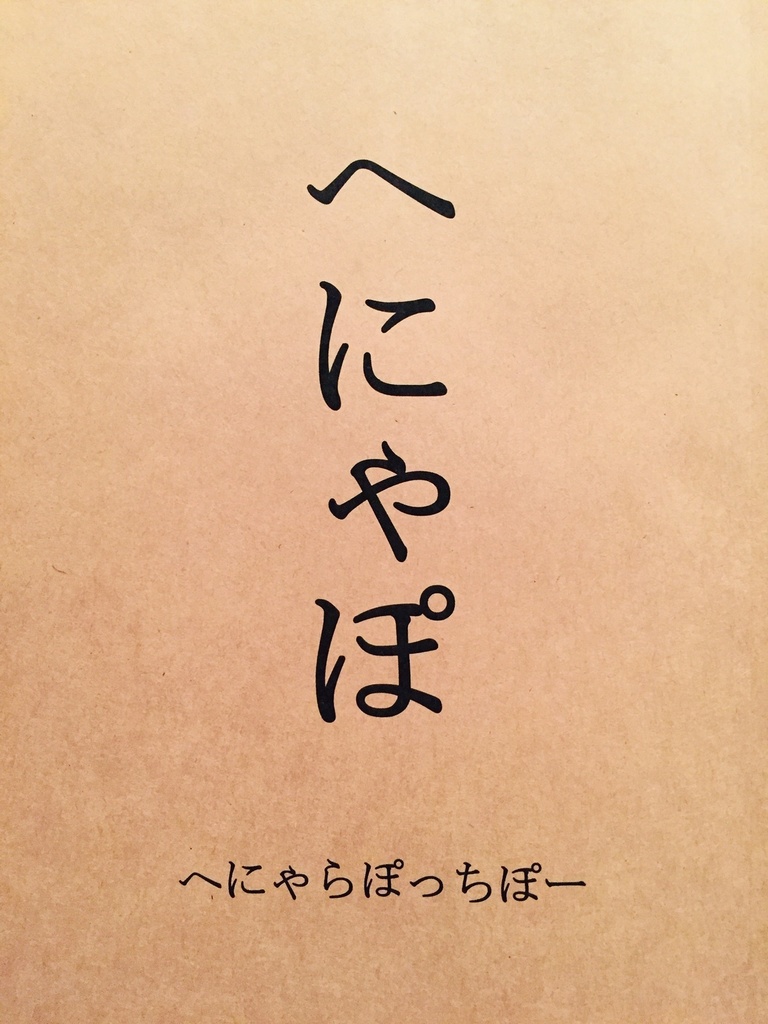 へにゃぽ
へにゃらぽっちぽー